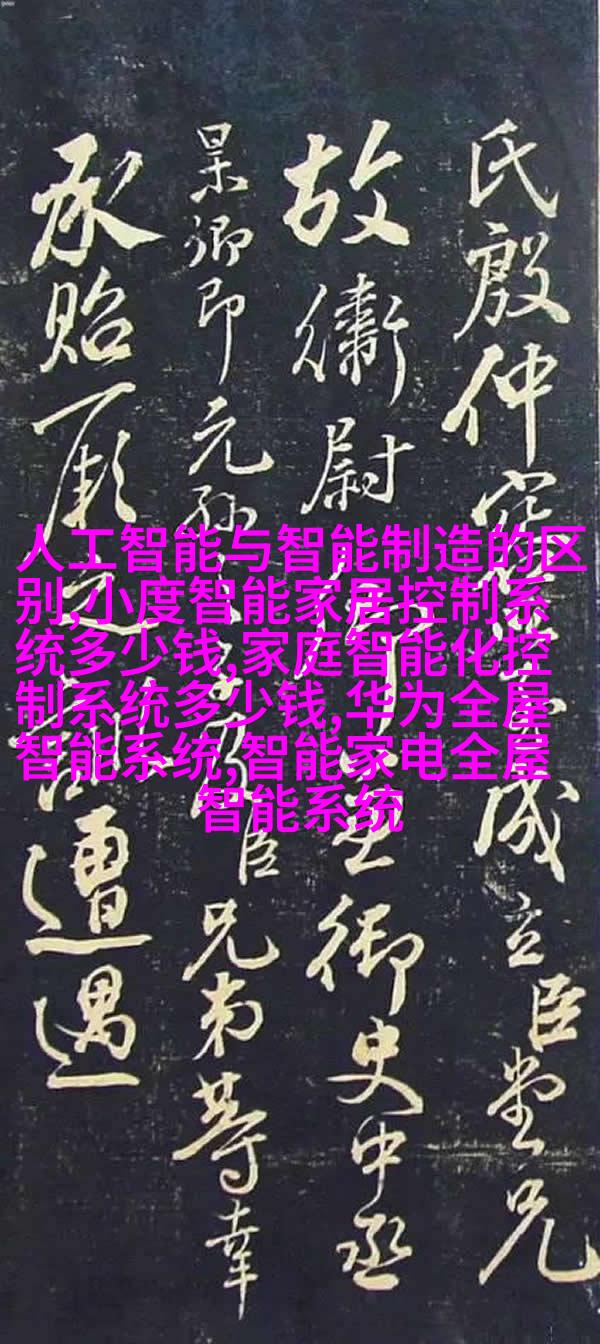 氏殷仲容成立臣堂兄
故衞尉御史中丞
杲卿即元孫臣兄弟等幸
承貽厥之訓遭遇
人工智能与智能制造的区
别,小度智能家居控制系
统多少钱,家庭智能化控
制系统多少钱,华为全屋
智能系统,智能家电全屋
智能系统